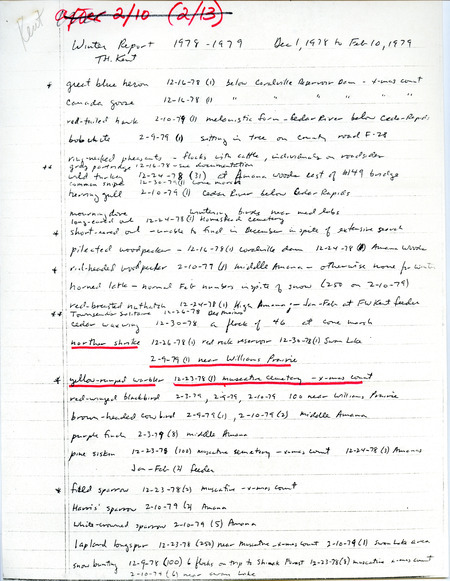 Kent
2/10 (2/13)
Winter Report 1978-1979 Dec 1, 1978 to Feb 10, 1979
T.H. Kent
* great blue heron 12-16-78 (1) below Coralville Reservoir Dam - x-mas count
Canada goose 12-16-78 (1) " " " " "
red-tailed hawk 2-10-79 (1) melanistic form - Cedar River below Cedar Rapids
bobwhite 2-9-79 (1) sitting in tree on county road F-28
ring-necked pheasants - flocks with cattle, individuals on roadsides
** gray partridge 12-16-78 - see documentation
wild turkey 12-24-78 (31) at Amana woods east of W49 bridge
common snipe 12-30-79 (1) Cone marsh
herring gull 2-10-79 (1) Cedar River below Cedar Rapids
mourning dove wintering birds near med labs
long-eared owl 12-24-78 (1) Homestead cemetery
* short-eared owl - unable to find in December in spite of extensive search
pileated woodpecker - 12-16-78 (1) Coralville dam 12-24-78 (1) Amana Woods
* red-headed woodpecker 2-10-79 (1) middle Amana - otherwise none for winter
horned lark - normal Feb numbers in spite of snow (250 on 2-10-79)
red-breasted nuthatch 12-24-78 (1) High Amana; - Jan-Feb at FW Kent feeder
** Townsends Solitaire 12-26-78 Des Moines
cedar waxwing 12-30-78 a flock of 46 at cone marsh
northern shrike 12-26-78 (1) red rock reservoir 12-30-78 (1) Swan Lake
2-9-79 (1) near Williams Prairie
* yellow-rumped warbler 12-23-78 (1) muscatine cemetery - x-mas count
red-winged blackbird 2-3-79, 2-9-79, 2-10-79 100 near Williams Prairie
brown-headed cowbird 2-9-79 (1), 2-10-79 (2) middle Amana
purple finch 2-3-79 (8) middle Amana
pine siskin 12-23-78 (100) muscatine cemetery - x-mas count 12-24-78 (3) Amanas
Jan-Feb (2) feeder
* field sparrow 12-23-78 (2) muscatine - x-mas count
Harris' sparrow 2-10-79 (2) Amana
white-crowned sparrow 2-10-79 (5) Amana
lapland longspur 12-23-78 (250) near Muscatine, x-mas count 2-10-79 (3) Swan Lake area
snow bunting 12-9-78 (100) 6 flocks on trip to Shimek Forest 12-23-78 (2) muscatine x-mas count
2-10-79 (6) near swan lake